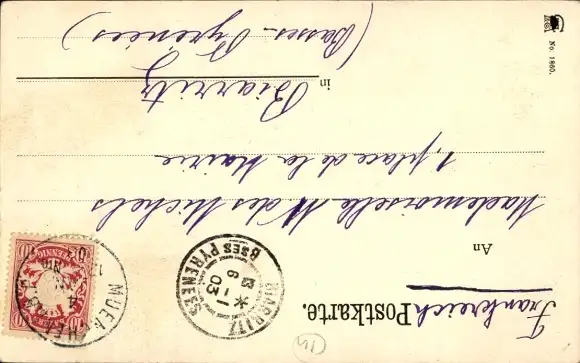 Frankreich Postkarte.
An
Mademoiselle M. des Michels
1, place de la Mairie
in Biarritz
(Basses-Pyrénées)
No. 1860.
BIARRITZ
6 -1
03
BSES PYRENEES
10 PFENNIG 10
BAYERN